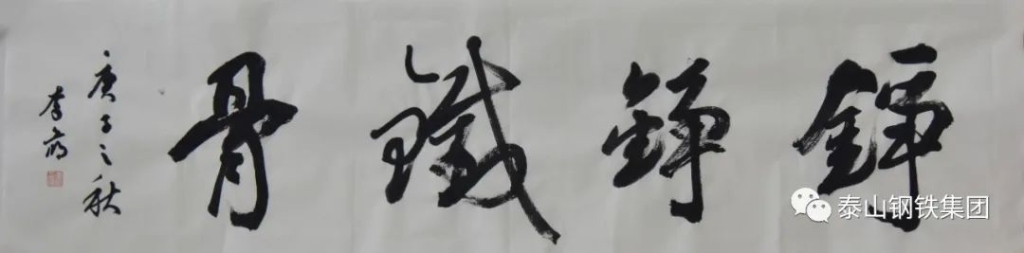 錚錚鐵骨
庚子之秋
泰山钢铁集团